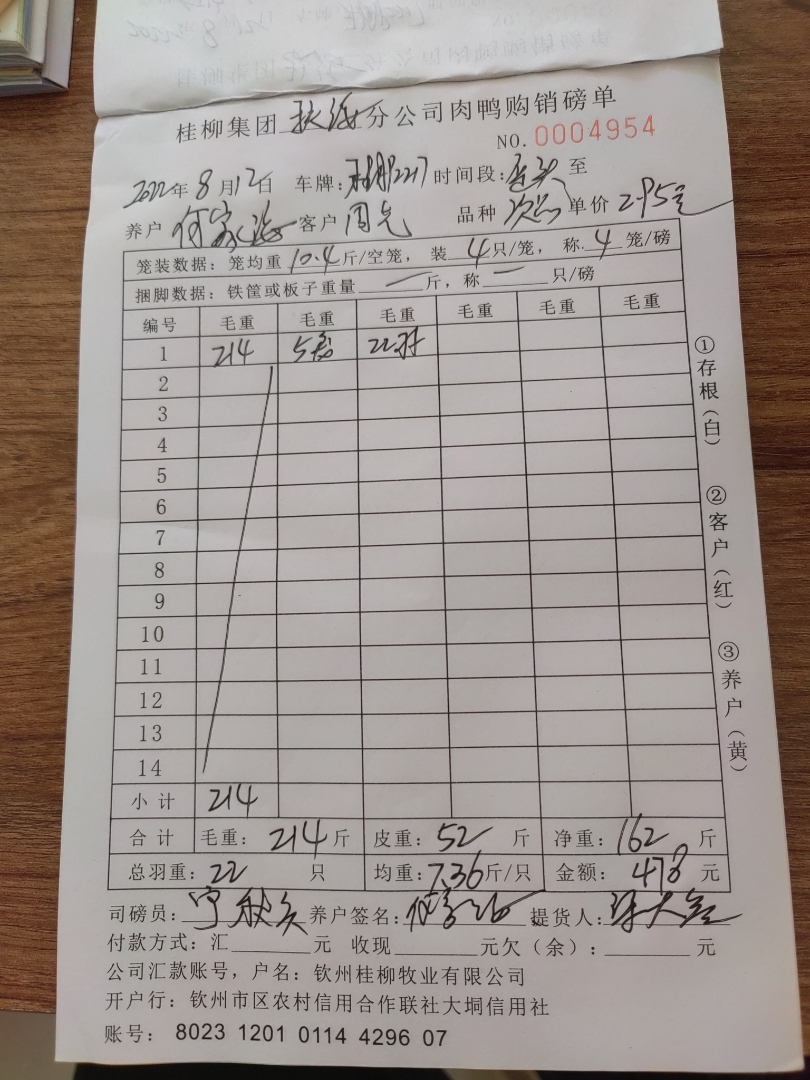 桂柳集团 分公司肉鸭购销磅单
NO.0004954
2022年8月12日 车牌: 2217 时间段: 至
养户 何家海 客户 周先 品种 次品 单价 2.95元
笼装数据:笼均重10.4斤/空笼,装4只/笼,称.4笼/磅
捆脚数据:铁筐或板子重量一斤,称一只/磅
编号 毛重 毛重 毛重 毛重 毛重 毛重
1 214 5笼 22只
2
3
4
5
6
7
8
9
10
11
12
13
14
小计 214
合计 毛重:214斤 皮重:52斤 净重:162斤
总羽重:22只 均重:7.36斤/只 金额:478元
司磅员: 养户签名:何家海 提货人:
付款方式:汇 元 收现 元欠(余): 元
公司汇款账号,户名:钦州桂柳牧业有限公司
开户行:钦州市区农村信用合作联社大垌信用社
账号:8023 1201 0114 4296 07
①存根(白) ②客户(红) ③养户(黄)